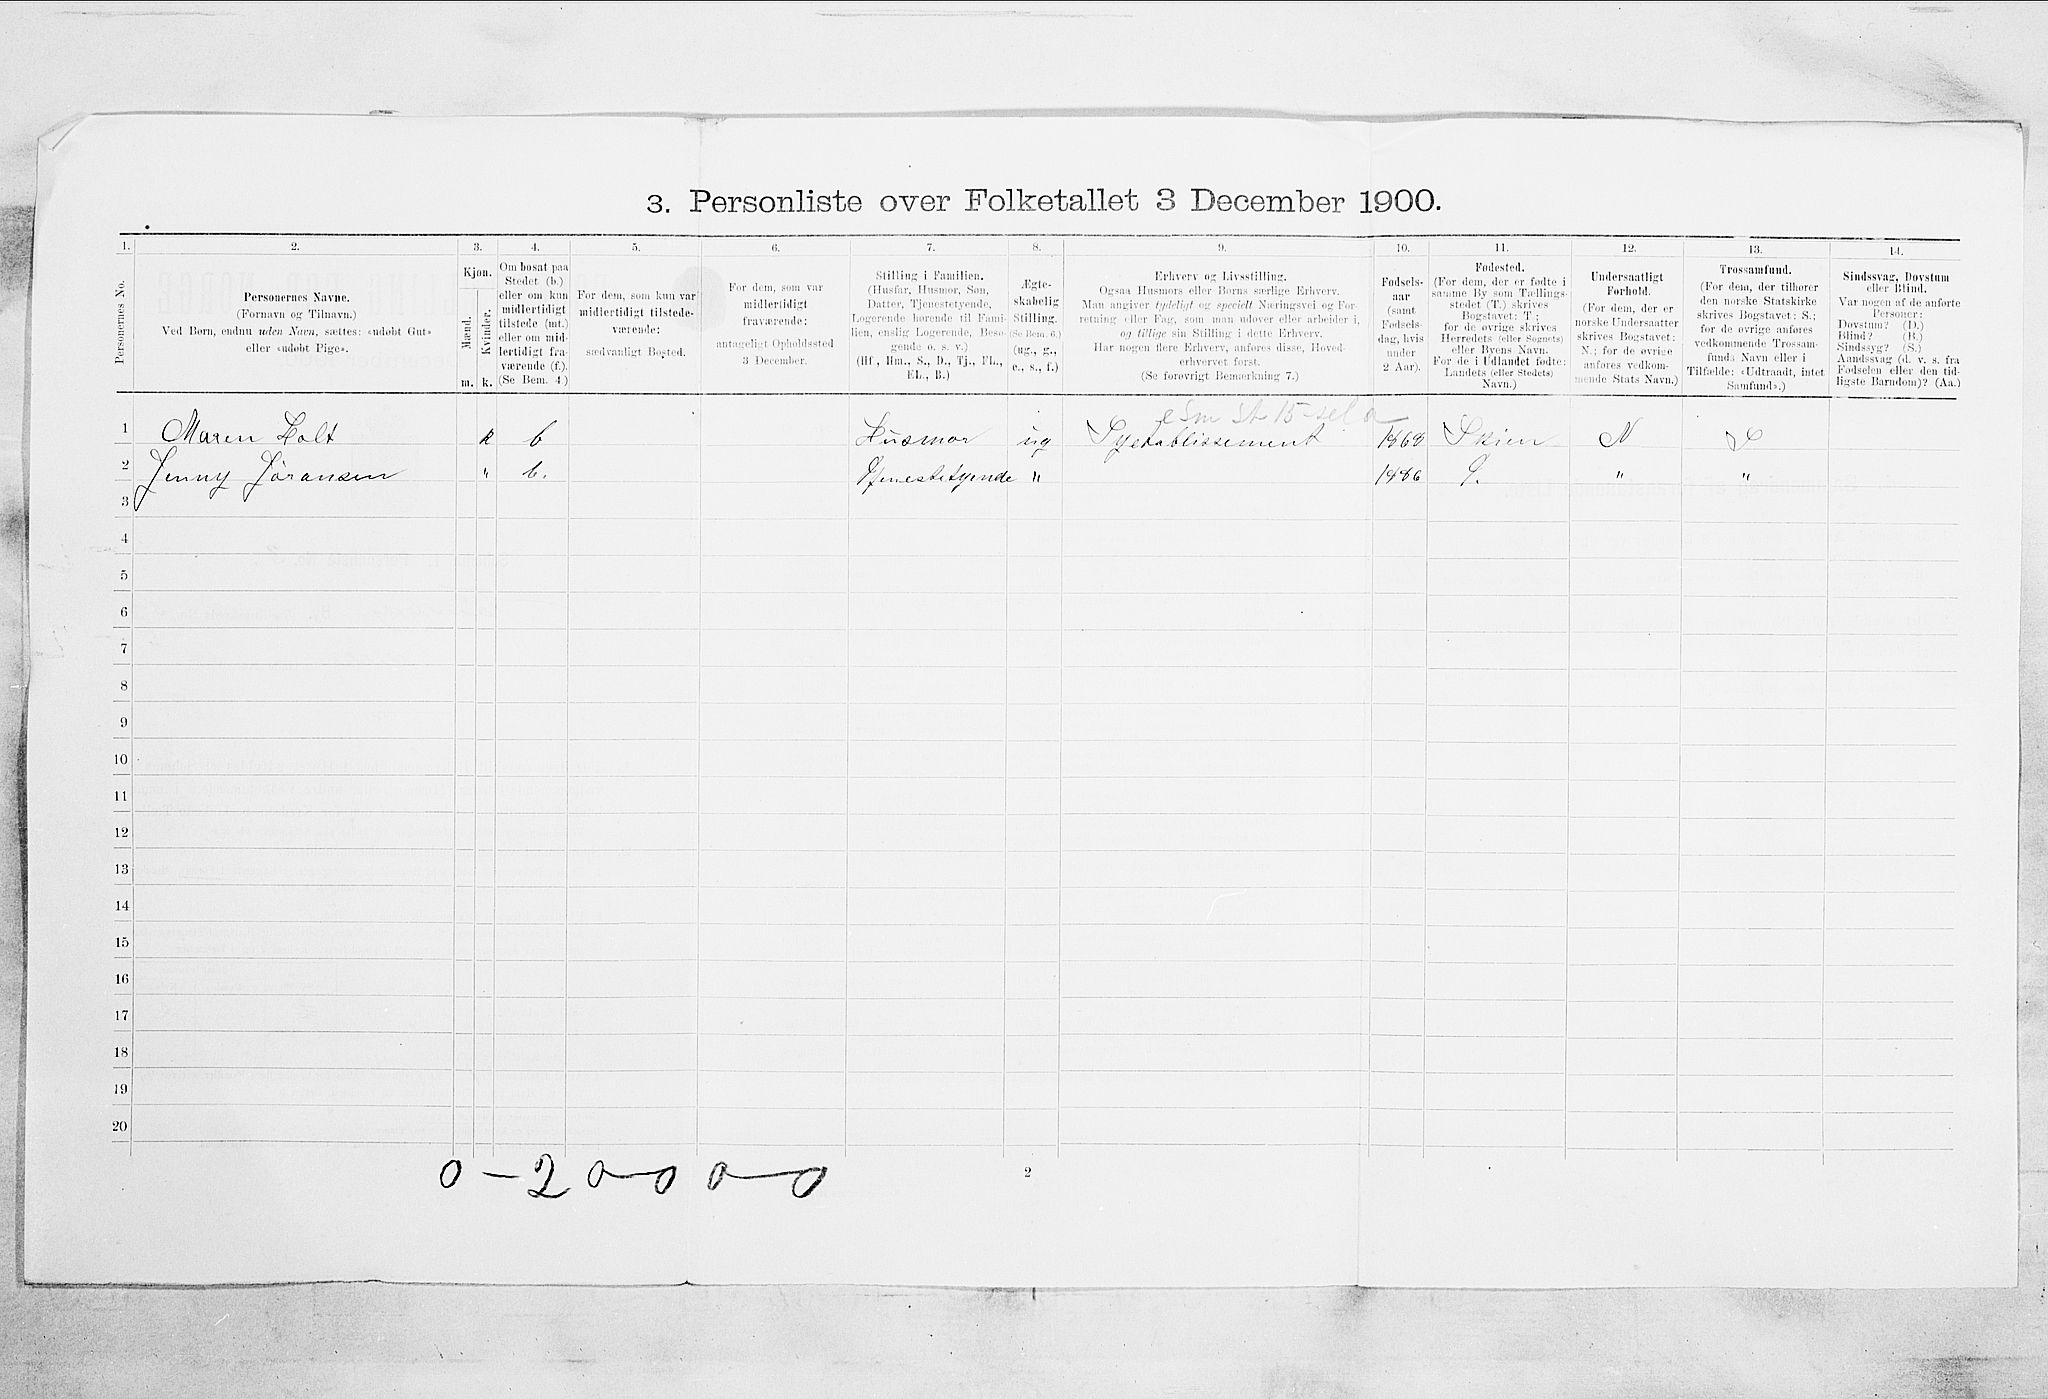 3. Personliste over Folketallet 3 December 1900.
1. 2. 3. 4. 5. 6. 7. 8. 9. 10. 11. 12. 13. 14.
Personernes No.
Personernes Navne.
(Fornavn og Tilnavn.)
Ved Børn, endnu uden Navn, sættes: «udøbt Gut»
eller «udøbt Pige».
Kjøn.
Mænd.
Kvinder.
m. k.
Om bosat paa
Stedet (b.)
eller om kun
midlertidigt
tilstede (mt.)
eller om mid-
lertidigt fra-
værende (f.).
(Se Bem. 4)
For dem, som kun var
midlertidigt tilstede-
værende:
sædvanligt Bosted.
For dem, som var
midlertidigt
fraværende:
antageligt Opholdssted
3 December.
Stilling i Familien.
(Husfar, Husmor, Søn,
Datter, Tjenestetyende,
Logerende hørende til Fami-
lien, enslig Logerende, Besø-
gende o. s. v.)
(Hf., Hm., S., D., Tj., FL.,
EL., B.)
Ægte-
skabelig
Stilling.
(Se Bem. 6.)
(ug., g.,
e., s., f.)
Erhverv og Livsstilling.
Ogsaa Husmors eller Børns særlige Erhverv.
Man angiver tydeligt og specielt Næringsvei og For-
retning eller Fag, som man udøver eller arbeider i,
og tillige sin Stilling i dette Erhverv.
Har nogen flere Erhverv, anføres disse, Hoved-
erhvervet først.
(Se forøvrigt Bemærkning 7.)
Fødsels-
aar
(samt
Fødsels-
dag, hvis
under
2 Aar).
Fødested.
(For dem, der er fødte i
samme By som Tællings-
stedet (T.) skrives
Bogstavet: T.;
for de øvrige skrives
Herredets (eller Sognets)
eller Byens Navn.
For de i Udlandet fødte:
Landets (eller Stedets)
Navn.)
Undersaatligt
Forhold.
(For dem, der er
norske Undersaatter
skrives Bogstavet:
N.; for de øvrige
anføres vedkom-
mende Stats Navn.)
Trossamfund.
(For dem, der tilhører
den norske Statskirke
skrives Bogstavet: S.;
for de øvrige anføres
vedkommende Trossam-
funds Navn eller i
Tilfælde: «Udtraadt, intet
Samfund».)
Sindssvag, Døvstum
eller Blind.
Var nogen af de anførte
Personer:
Døvstum? (D.)
Blind? (B.)
Sindssyg? (S.)
Aandssvag (d. v. s. fra
Fødselen eller den tid-
ligste Barndom)? (Aa.)
1 Maren Holt k b Husmor ug Syetablissement 1868 Skien N S
2 Jenny Jøransen " b. Tjenestetyende " 1886 " "
3
4
5
6
7
8
9
10
11
12
13
14
15
16
17
18
19
20
0 – 2 0–0 0–0
2